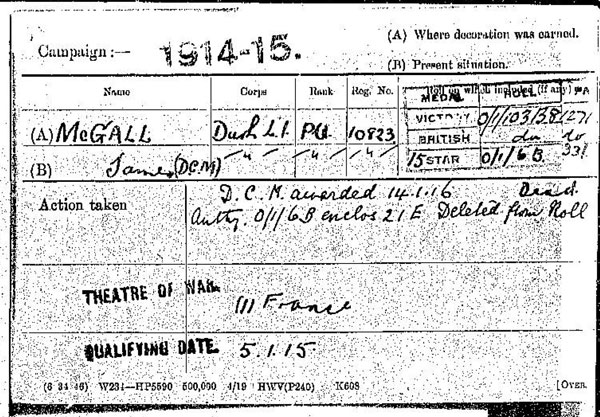 (A) Where decoration was earned.
Campaign :— 1914-15.
(B) Present situation.
Name Corps Rank Reg. No. Roll on which included (if any)
MEDAL ROLL PA
(A) McGALL Durh. L.I. Pte 10823 VICTORY O/1/103/B8 1271
BRITISH do do
(B) James (D.C.M) " " " " 15 STAR O/1/6B 331
Action taken D.C.M. awarded 14.1.16
Authy. O/1/6B enclos 21E Deleted from Roll
THEATRE OF WAR. (1) France
QUALIFYING DATE. 5.1.15
(6 34 46) W234—HP5590 500,000 4/19 HWV(P240) K608 [OVER.